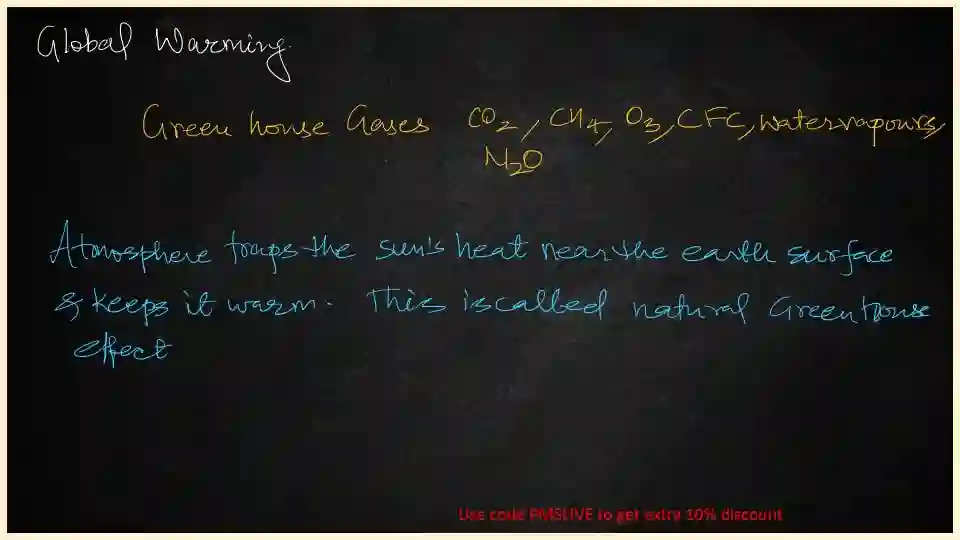 Global Warming.
Green house Gases CO₂, CH₄, O₃, CFC, watervapours,
N₂O
Atmosphere traps the sun's heat near the earth surface
& keeps it warm. This is called natural Greenhouse
effect
Use code PMSLIVE to get extra 10% discount